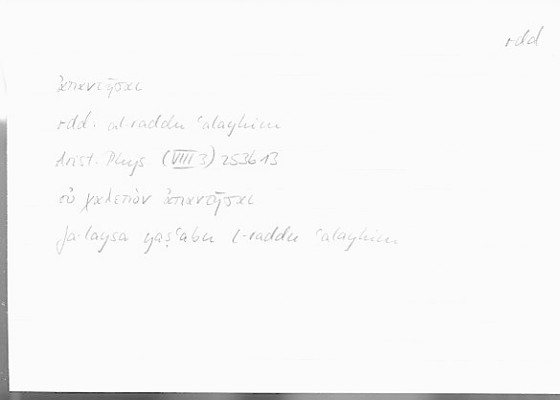 rdd
ἀπαντῆσαι
rdd. al-raddu ʿalayhim
Arist. Phys (VIII 3) 253b13
οὐ χαλεπὸν ἀπαντῆσαι
fa-laysa yaṣʿabu l-raddu ʿalayhim